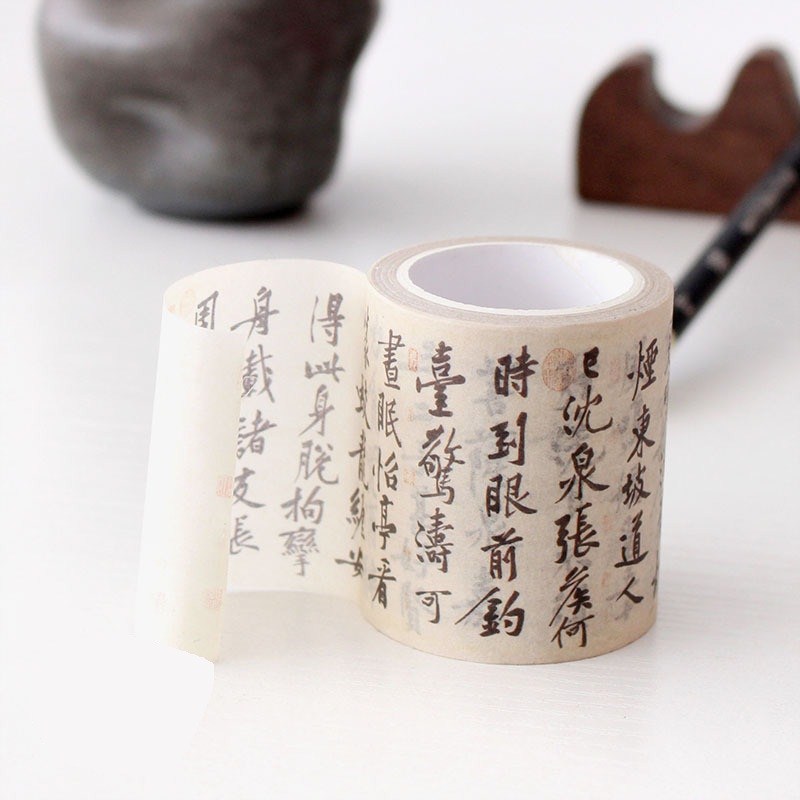 煙東坡道人
已沈泉張侯何
時到眼前釣
臺驚濤可
晝眠怡亭看
蛟龍纏安
得此身脫拘攣
舟載諸友長
周